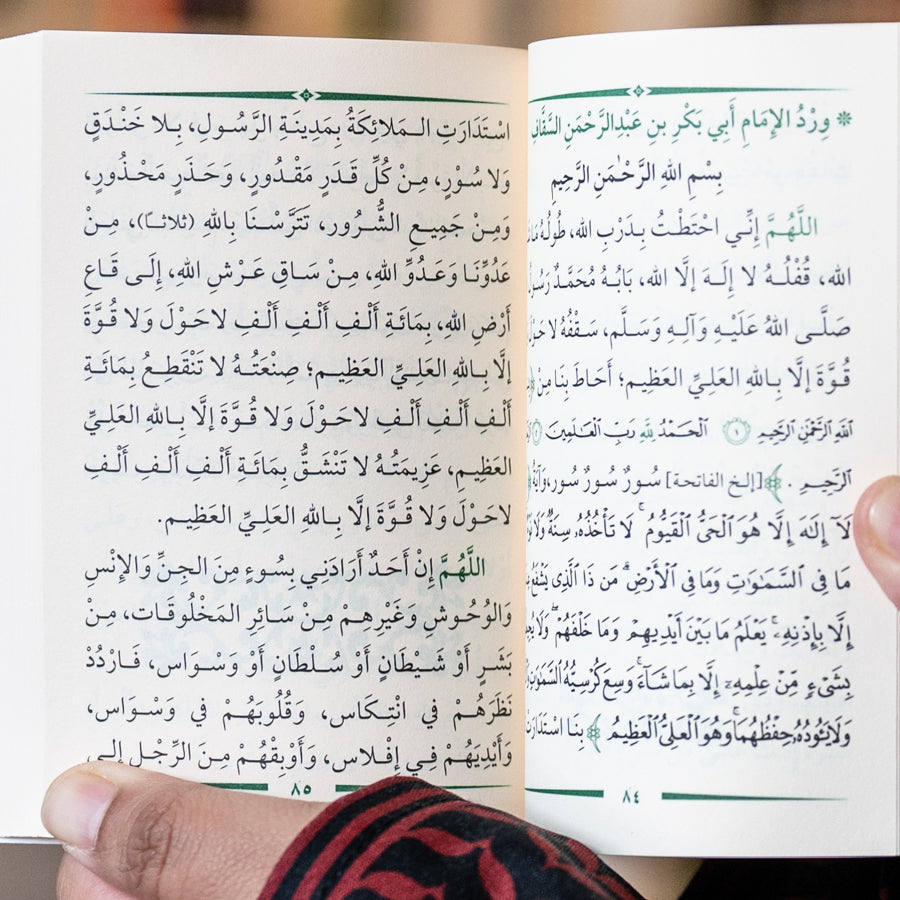 * وِرْدُ الإِمَامِ أَبِي بَكْرِ بنِ عَبْدِالرَّحْمَنِ السَّقَّافِ
بِسْمِ اللهِ الرَّحْمٰنِ الرَّحِيمِ
اللَّهُمَّ إِنِّي احْتَطْتُ بِدَرْبِ الله، طُولُهُ
الله، قُفْلُهُ لا إِلَهَ إلَّا الله، بَابُهُ مُحَمَّدٌ رَسُولُ
صَلَّى اللهُ عَلَيْهِ وَآلِهِ وَسَلَّم، سَقْفُهُ لا حَوْلَ
قُوَّةَ إلَّا بِاللهِ العَلِيِّ العَظِيم؛ أَحَاطَ بِنَا مِنْ
اللَّهِ الرَّحْمَٰنِ الرَّحِيمِ ١ الْحَمْدُ لِلَّهِ رَبِّ الْعَالَمِينَ ٢
الرَّحِيمِ . ﴾ [إلخ الفاتحة] سُورٌ سُورٌ سُور، وَآيَةُ
لَآ إِلَٰهَ إِلَّا هُوَ الْحَيُّ الْقَيُّومُ ۚ لَا تَأْخُذُهُ سِنَةٌ وَلَا
مَا فِي السَّمَٰوَٰتِ وَمَا فِي الْأَرْضِ ۗ مَن ذَا الَّذِي يَشْفَعُ
إِلَّا بِإِذْنِهِ ۚ يَعْلَمُ مَا بَيْنَ أَيْدِيهِمْ وَمَا خَلْفَهُمْ ۖ وَلَا
بِشَيْءٍ مِّنْ عِلْمِهِ إِلَّا بِمَا شَاءَ ۚ وَسِعَ كُرْسِيُّهُ السَّمَٰوَٰتِ
وَلَا يَئُودُهُ حِفْظُهُمَا ۚ وَهُوَ الْعَلِيُّ الْعَظِيمُ ﴾ بِنَا اسْتَدَارَتْ
٨٤
اسْتَدَارَتِ الـمَلائِكَةُ بِمَدِينَةِ الرَّسُولِ، بِلا خَنْدَقٍ
وَلا سُوْرٍ، مِنْ كُلِّ قَدَرٍ مَقْدُورٍ، وَحَذَرٍ مَحْذُورٍ،
وَمِنْ جَمِيعِ الشُّرُور، تَتَرَّسْنَا بِاللهِ (ثلاثاً)، مِنْ
عَدُوِّنَا وَعَدُوِّ اللهِ، مِنْ سَاقِ عَرْشِ اللهِ، إِلَى قَاعِ
أَرْضِ اللهِ، بِمَائَةِ أَلْفِ أَلْفِ أَلْفِ لاحَوْلَ وَلا قُوَّةَ
إلَّا بِاللهِ العَلِيِّ العَظِيم؛ صِنْعَتُهُ لا تَنْقَطِعُ بِمَائَةِ
أَلْفِ أَلْفِ أَلْفِ لاحَوْلَ وَلا قُوَّةَ إلَّا بِاللهِ العَلِيِّ
العَظِيمِ، عَزِيمَتُهُ لا تَنْشَقُّ بِمَائَةِ أَلْفِ أَلْفِ أَلْفِ
لاحَوْلَ وَلا قُوَّةَ إلَّا بِاللهِ العَلِيِّ العَظِيم.
اللَّهُمَّ إِنْ أَحَدٌ أَرَادَنِي بِسُوءٍ مِنَ الجِنِّ وَالإِنْسِ
وَالوُحُوشِ وَغَيْرِهِمْ مِنْ سَائِرِ المَخْلُوقَات، مِنْ
بَشَرٍ أَوْ شَيْطَانٍ أَوْ سُلْطَانٍ أَوْ وَسْوَاس، فَارْدُدْ
نَظَرَهُمْ في انْتِكَاس، وَقُلُوبَهُمْ في وَسْوَاس،
وَأَيْدِيَهُمْ فِي إِفْلاس، وَأَوْبِقْهُمْ مِنَ الرِّجْلِ إِلى
٨٥